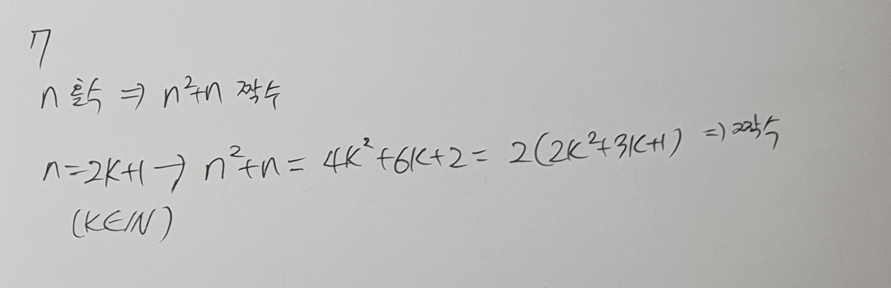 7
n 홀수 ⇒ n²+n 짝수
n=2k+1 → n²+n = 4k²+6k+2 = 2(2k²+3k+1) ⇒ 짝수
(k∈ℕ)